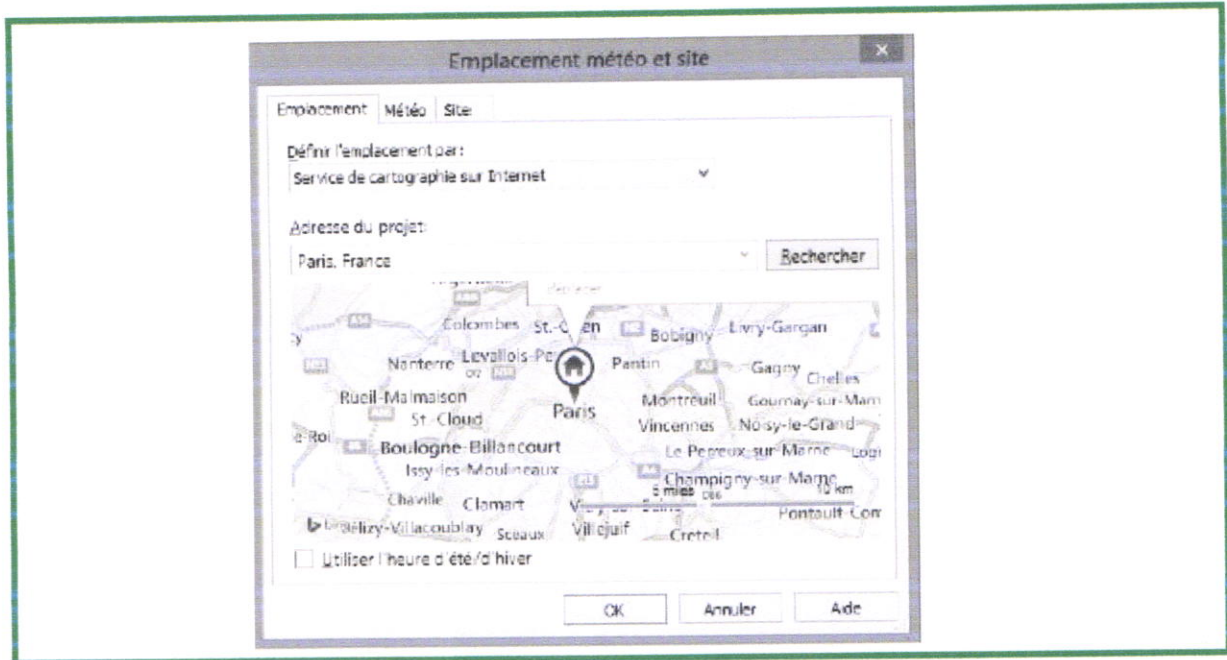 Emplacement météo et site
Emplacement Météo Site
Définir l'emplacement par:
Service de cartographie sur Internet
Adresse du projet:
Paris, France
Rechercher
Colombes
Bobigny Livry-Gargan
Nanterre
Pantin
Gagny
Chelles
Rueil-Malmaison
Montreuil
St. Cloud
Paris
Vincennes Noisy-le-Grand
Boulogne-Billancourt
Le Perreux-sur-Marne
Issy-les-Moulineaux
Champigny-sur-Marne
5 miles 10 km
Chaville Clamart
Sceaux Villejuif Créteil
Utiliser l'heure d'été/d'hiver
OK Annuler Aide